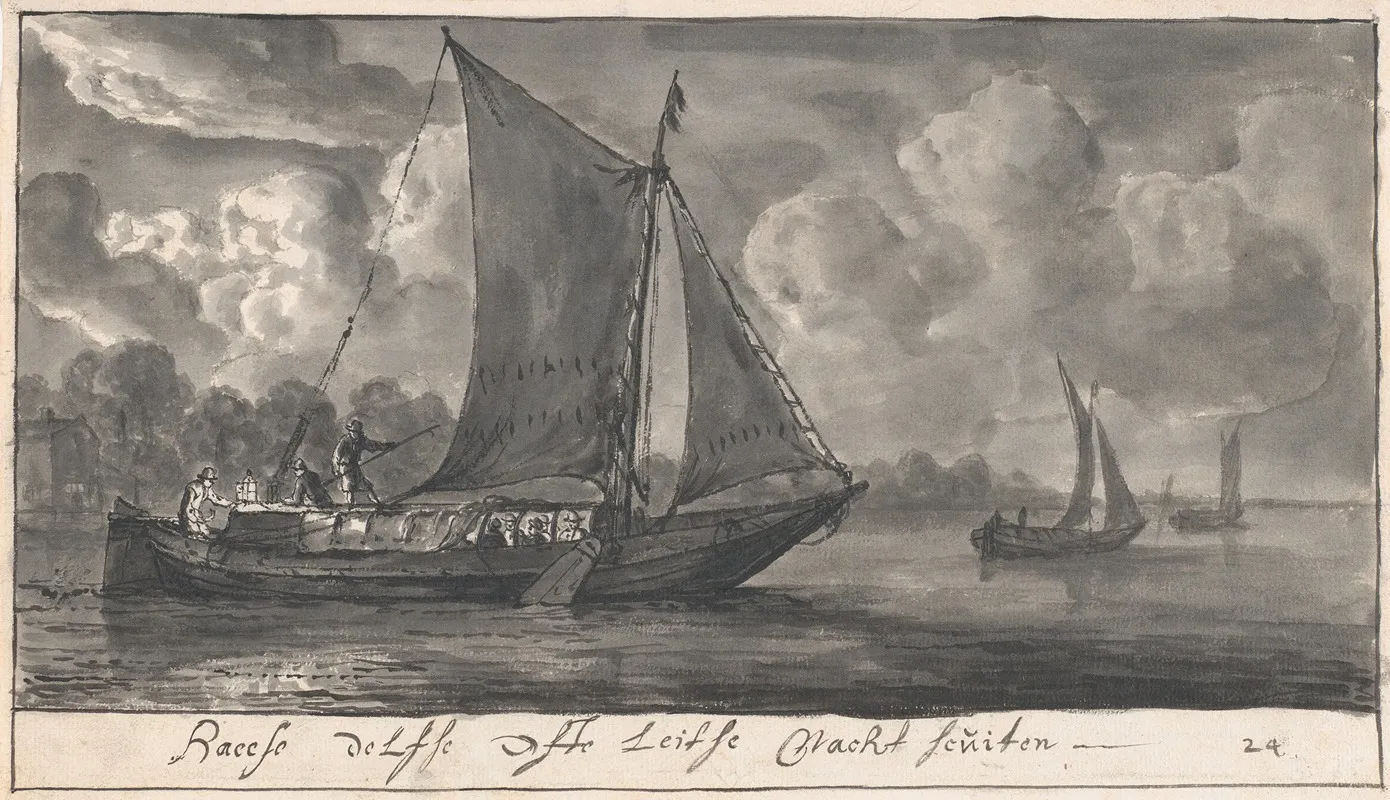 Haecse delfse Ofte Leitse Nacht scuiten — 24